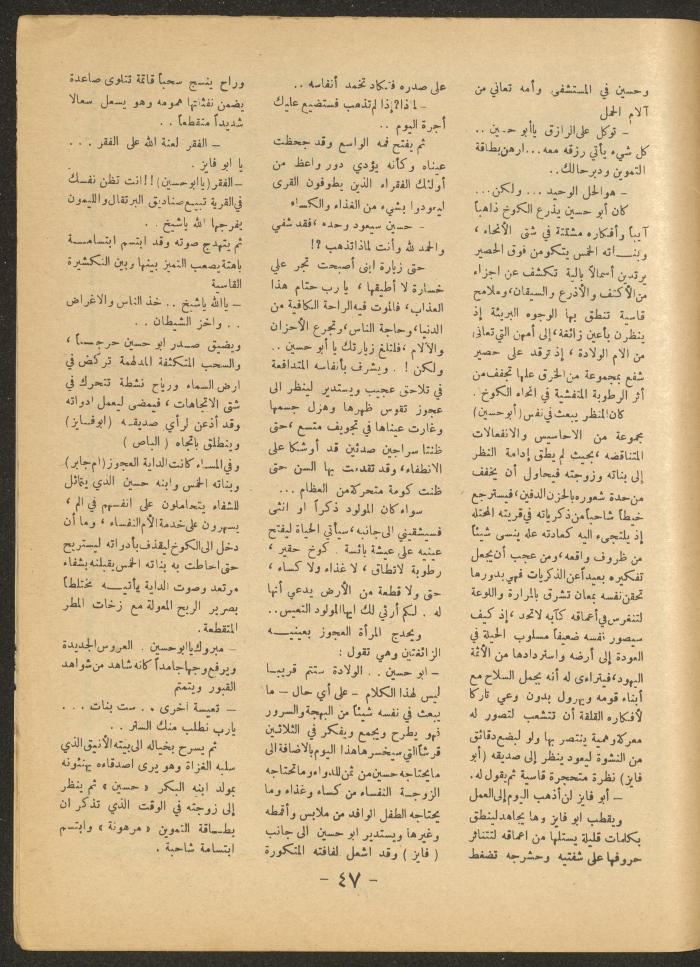 وحسين في المستشفى وأمه تعاني من
آلام الحمل
- توكل على الرازق ياأبو حسين ..
كل شيء يأتي رزقه معه... ارهن بطاقة
التموين ودبر حالك..
- هو الحل الوحيد ... ولكن...
كان أبو حسين يذرع الكوخ ذاهباً
آيباً وأفكاره مشتتة في شتى الأنحاء ،
وبنـــاته الخمس يتكومن فوق الحصير
يرتدين أسمالاً بالية تكشف عن اجزاء
من الأكتف والأذرع والسيقان، وملامح
قاسية تنطق بها الوجوه البريئة إذ
ينظرن بأعين زائغة، إلى أمهن التي تعاني
من الام الولادة ، إذ ترقد على حصير
شفع بمجموعة من الخرق علها تخفف من
أثر الرطوبة المتفشية في انحاء الكوخ .
كان المنظر يبعث في نفس (أبو حسين)
مجموعة من الاحاسيس والانفعالات
المتناقضه ، بحيث لم يطق إدامة النظر
إلى بناته وزوجته فيحاول أن يخفف
من حدة شعوره بالحزن الدفين، فيسترجع
خيطاً شاحباً من ذكرياته في قريته المحتله
إذ يلتجىء اليه كعادته عله ينسى شيئاً
من ظروف واقعه، ومن عجب أن يجعل
تفكيره بعيداً عن الذكريات فهي بدورها
تحقن نفسه بمعان تشرق بالمرارة واللوعة
لتنغرس في أعماقه كآبه لاتحد ، إذ كيف
سيصور نفسه ضعيفاً مسلوب الحيلة في
العودة إلى أرضه واستردادها من الأئمة
اليهود، فيتراءى له أنه يحمل السلاح مع
أبناء قومه ويهرول بدون وعي تاركا
لأفكاره القلقة أن تتشعب لتصور له
معركة وهمية ينتصر بها ولو لبضع دقائق
من النشوة ليعود ينظر إلى صديقه (أبو
فايز) نظرة متحجرة قاسية ثم يقول له.
- أبو فايز لن أذهب اليوم إلى العمل
ويقطب ابو فايز وها يجاهد لينطق
بكلمات قليلة يستلها من اعماقه لتتناثر
حروفها على شفتيه وحشرجه تضغط
على صدره فتكاد تخمد أنفاسه ..
- لماذا؟ إذا لم تذهب فستضيع عليك
أجرة اليوم ..
ثم يفتح فمه الواسع وقد جحظت
عيناه وكأنه يؤدي دور واعظ من
أولئك الفقراء الذين يطوفون القرى
ليعودوا بشيء من الغذاء والكساء
- حسين سيعود وحده ، فقد شفي
والحمد لله وأنت لماذا تذهب ؟!
حتى زيارة ابني أصبحت تجر علي
خسارة لا أطيقها ، يا رب حتام هذا
العذاب، فالموت فيه الراحة الكافية من
الدنيا، وحاجة الناس، وتجرع الأحزان
والآلام ، فلتلغ زيارتك يا أبو حسين ..
ولكن ! . ويشرف بأنفاسه المتدافعة
في تلاحق عجيب ويستدير لينظر الى
عجوز تقوس ظهرها وهزل جسمها
وغارت عيناها في تجويف متسع ، حتى
ظنتا سراجين صدئين قد أوشكا على
الانطفاء، وقد تقدمت بها السن حتى
ظنت كومة متحركة من العظام ...
سواء كان المولود ذكراً او انثى
فسيشقيني الى جانبه، سيأتي الحياة ليفتح
عينيه على عيشة بائسة . كوخ حقير ،
رطوبة لاتطاق ، لا غذاء ولا كساء ،
حتى ولا قطعة من الأرض يدعي أنها
له . لكم أرثي لك ايها المولود التعيس..
ويحدج المرأة العجوز بعينيـــه
الزائغتين وهي تقول :
- ابو حسين .. الولادة ستتم قريبـا
ليس لهذا الكلام - على أي حال - ما
يبعث في نفسه شيئاً من البهجة والسرور
فهو يطرح ويجمع ويفكر في الثلاثين
قرشاً التي سيخسرها هذا اليوم بالاضافة الى
ما يحتاجه حسين من ثمن للدواء وما تحتاجه
الزوجـة النفساء من كساء وغذاء وما
يحتاجه الطفل الوافد من ملابس وأقمطه
وغيرها ويستدير ابو حسين الى جانب
( فايز ) وقد اشعل لفافته المتكورة
وراح ينسج سحباً قاتمة تتلوى صاعدة
يضمن نفثاتها همومه وهو يسعل سعالا
شديداً متقطعاً . .
- الفقر لعنة الله على الفقر ...
يا ابو فايز .
- الفقر (يا ابو حسين) !! انت تظن نفسك
في القرية تبيع صناديق البرتقال والليمون
يفرجها الله ياشيخ . .
ثم يتهدج صوته وقد ابتسم ابتسامـــة
باهتة يصعب التميز بينها وبين التكشيرة
القاسية
- يالله ياشيخ .. خذ الناس والاغراض
. . واخز الشيطان . .
ويضيق صــدر ابو حسين حرجــاً ،
والسحب المتكثفة المدلهمة تركض في
ارض السماء ورياح نشطة تتحرك في
شتى الاتجاهات ، فيمضي ليعمل ادواته
وقد أذعن لرأي صديقـه (ابو فـايز)
وينطلق باتجاه ( الباص )
وفي المساء كانت الداية العجوز (ام جابر)
وبناته الخمس وابنه حسين الذي يتماثل
للشفاء يتحاملون على انفسهم في الم ،
يسهرون على خدمة الأم النفساء ، وما أن
دخل الى الكوخ ليقذف بأدواته ليستريح
حتى احاطت به بناته الخمس يقبلنه بشفاه
مرتعد وصوت الداية يأتيـــه مختلطاً
بصرير الريح المعولة مع زخات المطر
المتقطعة.
- مبروك ياابو حسين . العروس الجديدة
ويرفع وجها جامداً كانه شاهد من شواهد
القبور ويتمتم
- تعيسة اخرى . . ست بنات ...
يارب نطلب منك الستر ..
ثم يسرح بخياله الى بيته الأنيق الذي
سلبه الغزاة وهو يرى اصدقاءه يهنئونه
بمولد ابنه البكر « حسين » ثم ينظر
إلى زوجته في الوقت الذي تذكر ان
بطــاقة التموين « مرهونة » وابتسم
ابتسامة شاحبة .
- ٤٧ -